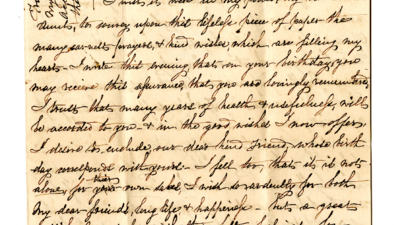 I wish it were in my power, my
Aunts, to convey upon this lifeless piece of paper the
many earnest prayers, & kind wishes which are filling my
heart - I write this evening that on your birthday, you
may receive this assurance, that you are lovingly remembered
I trust that many years of health & usefulness, will
be accorded to you - & in the good wishes I now offer,
I desire to include, our dear kind friend, whose birth
day corresponds with yours - I feel too, that it is not
alone, for their own sake, I wish so ardently for both
my dear friends, long life & happiness - but a great